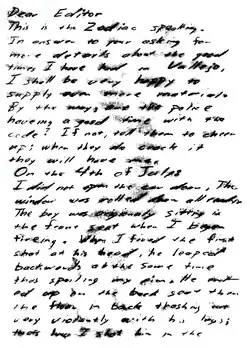 Dear Editor
This is the Zodiac speaking.
In answer to your asking for
more details about the good
times I have had in Vallejo,
I shall be very happy to
supply even more material.
By the way, are the police
haveing a good time with the
code? If not, tell them to cheer
up; when they do crack it
they will have me.
On the 4th of July
I did not open the car door, The
window was rolled down all ready
The boy was origionaly sitting in
the front seat when I began
fireing. When I fired the first
shot at his head, he leaped
backwards at the same time
thus spoiling my aim. He end
ed up on the back seat then
the floor in back thashing out
very violently with his legs;
thats how I shot him in the